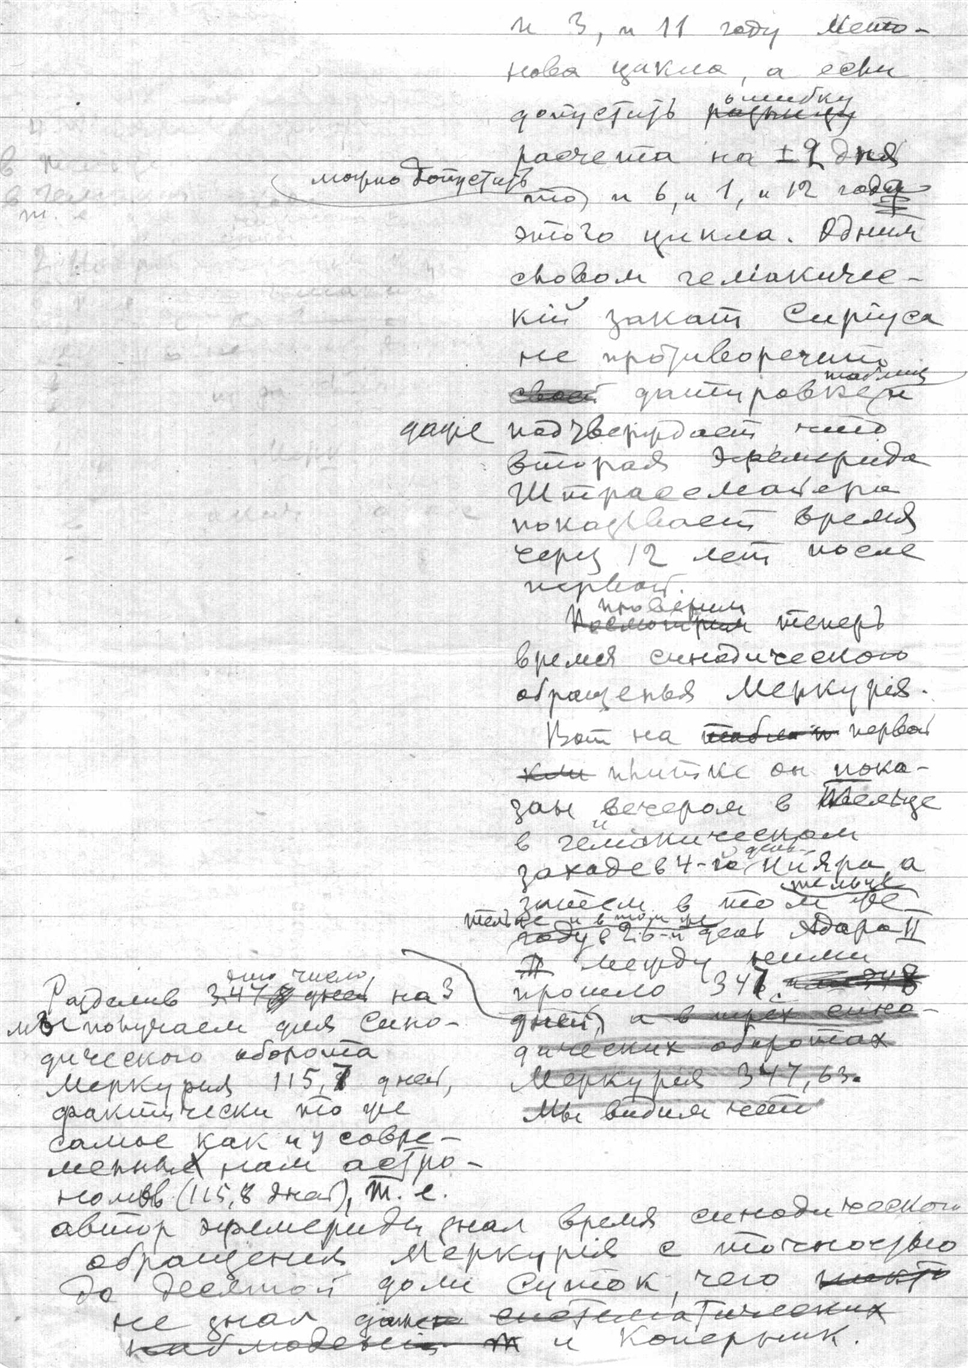 и 3, и 11 году Мето-
нова цикла, а если
допустить ошибку
расчета на ±2 дня
можно допустить
то, и 6, и 1, и 12 годы
этого цикла. Одним
словом гелиакиче-
кий закат Сириуса
не противоречит
датировке таблиц и
даже подтверждает, что
вторая эфемерида
Штрассмайера
показывает время
через 12 лет после
первой.
проверим
Посмотрим теперь
время синодического
обращенья Меркурія.
Вот на первой
плитке он пока-
зан вечером в Тельце
в гелиакическом
заходе в 4-й день Нияра, а
затем в том же Тельце
и в том же
году в 26-й день Адара II
между ними
прошло 347
дней, а в трех сино-
дических оборотах
Меркурия 347,63.
Мы видим что
Разделив это число 347 дней на 3
мы получаем для Сино-
дического оборота
Меркурия 115,7 дней,
фактически то же
самое как и у совре-
менных нам астро-
номов (115,8 дней), т. е.
автор эфемериды знал время синодического
обращения Меркурія с точностью
до десятой доли суток, чего никто
не знал даже систематических
наблюдений и Коперник.